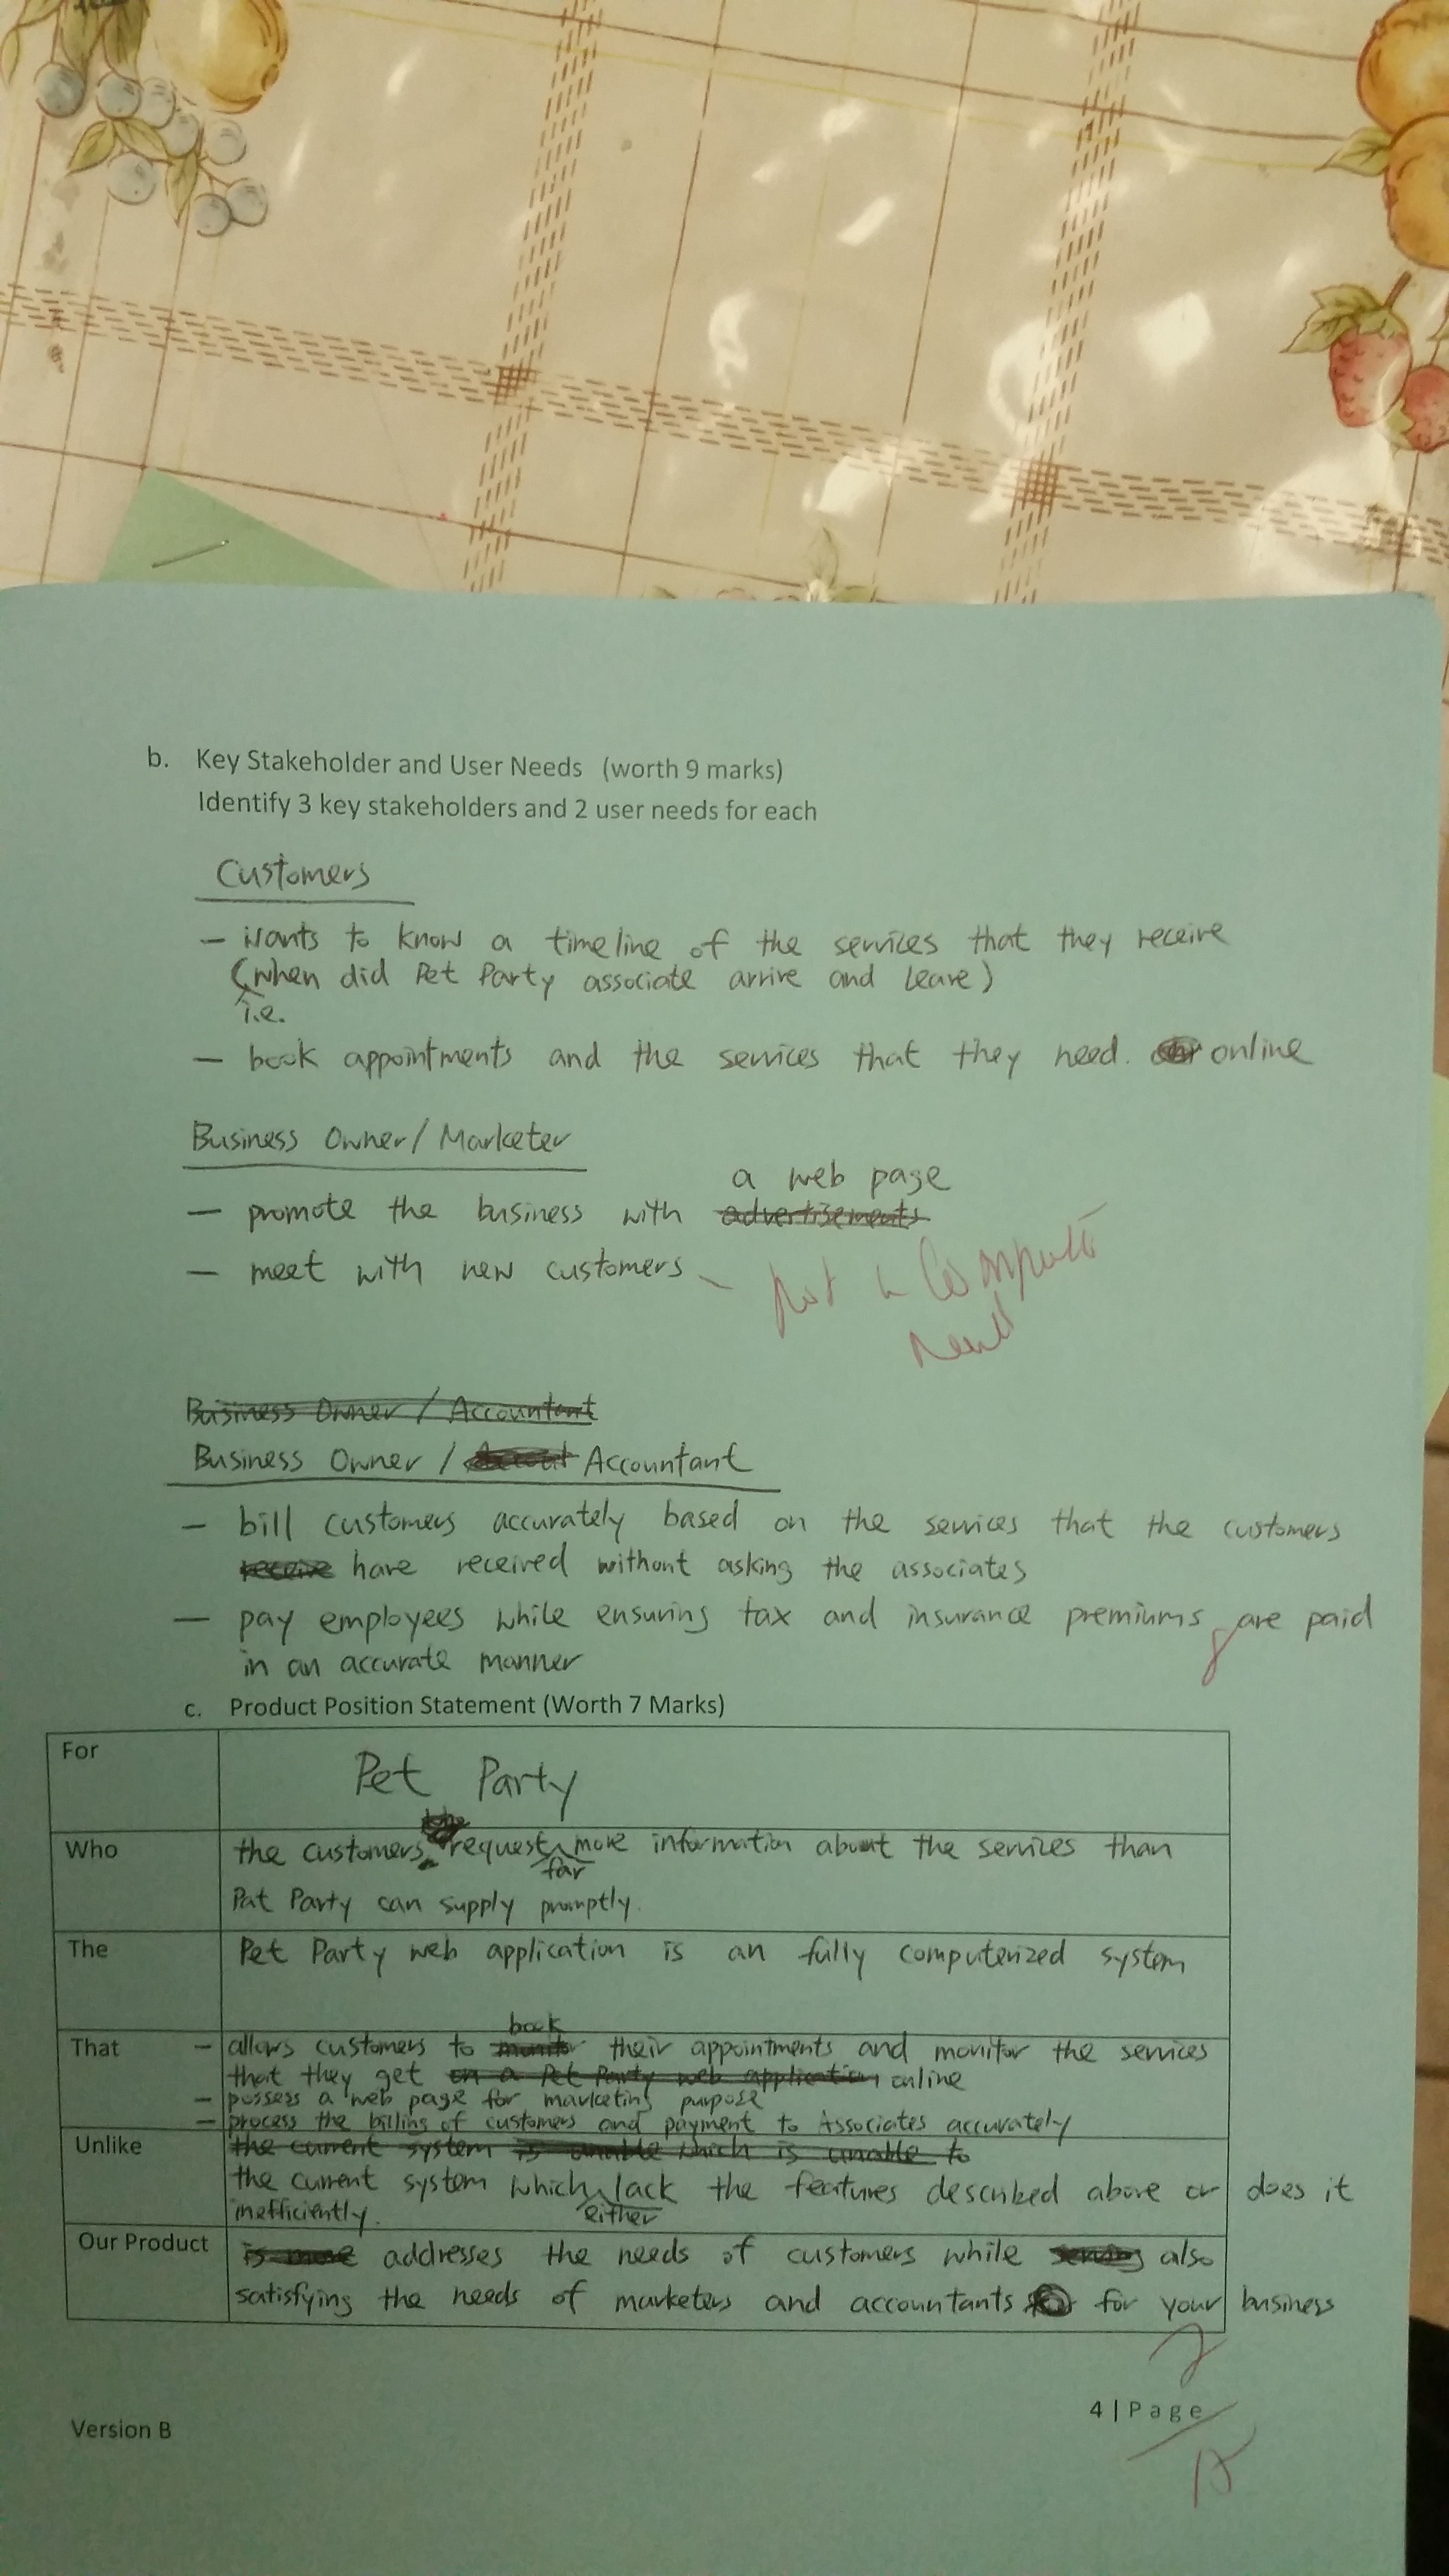 b. Key Stakeholder and User Needs (worth 9 marks)
Identify 3 key stakeholders and 2 user needs for each
Customers
- Wants to know a timeline of the services that they receive
(when did Pet Party associate arrive and leave)
i.e.
- book appointments and the services that they need. online
Business Owner/Marketer
a web page
- promote the business with advertisements
- meet with new customers
not a
need
Business Owner / Accountant
Business Owner / Accountant
- bill customers accurately based on the services that the customers
receive have received without asking the associates
- pay employees while ensuring tax and insurance premiums are paid
in an accurate manner
8
c. Product Position Statement (Worth 7 Marks)
For Pet Party
Who the customers request more information about the services than
far
Pat Party can supply promptly.
The Pet Party web application is an fully computerized system
book
That - allows customers to monitor their appointments and monitor the services
that they get on a Pet Party web application online
- possess a web page for marketing purpose
- process the billing of customers and payment to Associates accurately
Unlike the current system is unable which is unable to
the current system which lack the features described above or does it
either
inefficiently.
Our Product is more addresses the needs of customers while serving also
satisfying the needs of marketers and accountants for your business
7
4 | Page
Version B